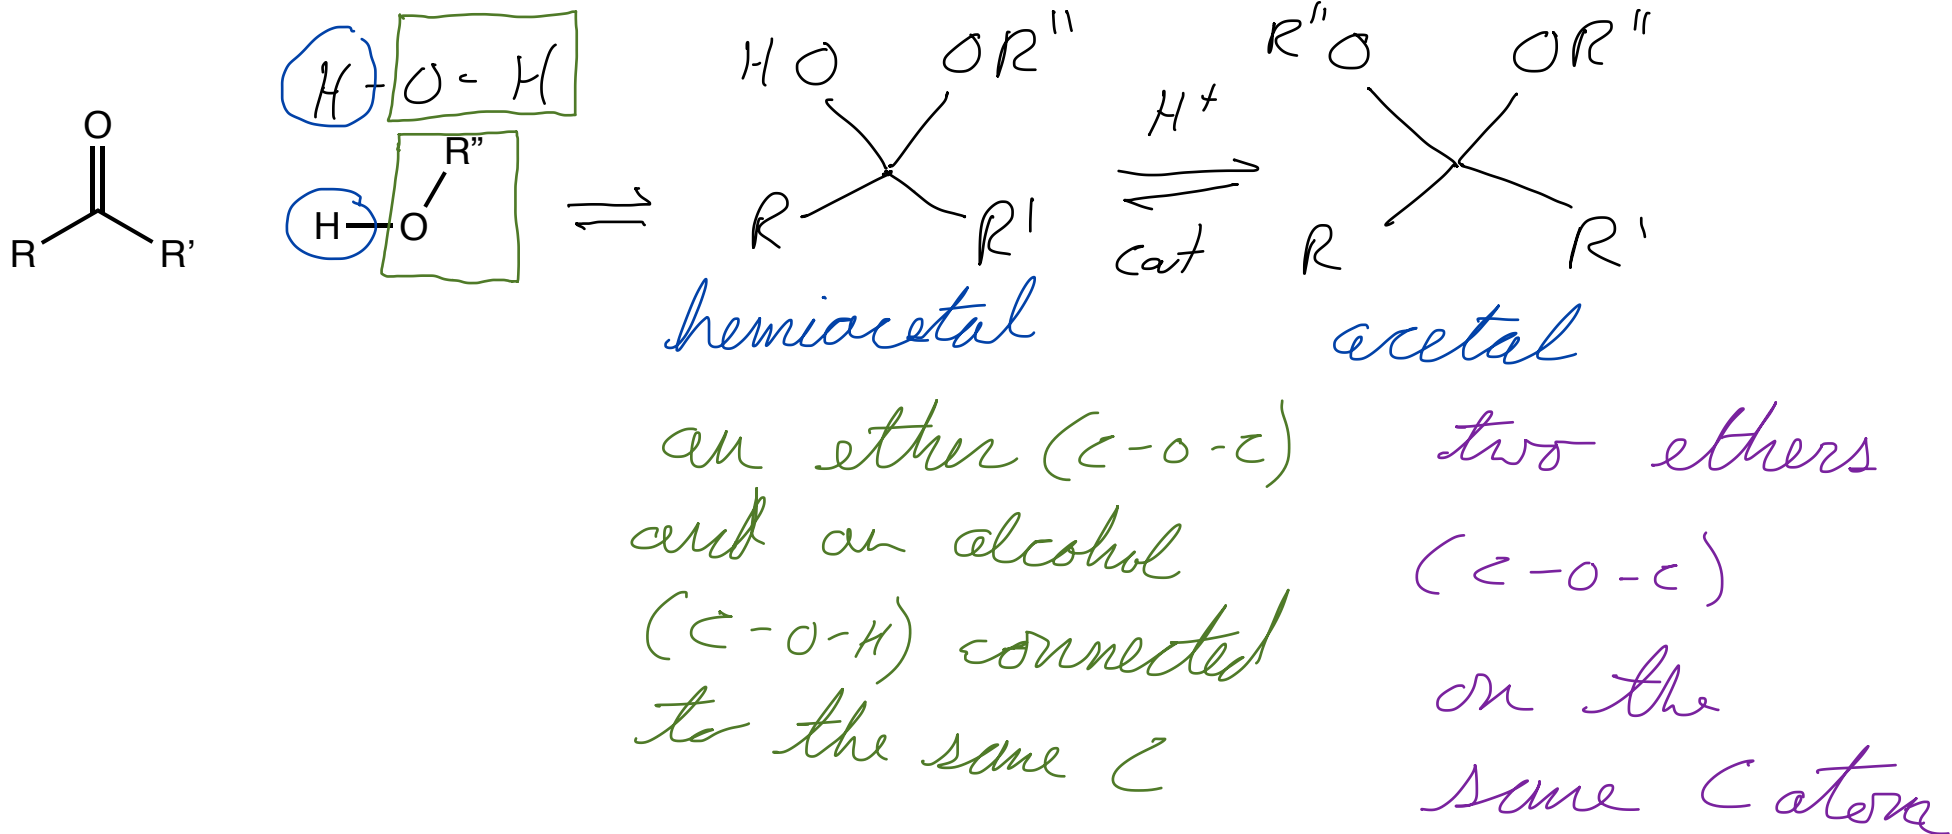 H-O-H
O
R R'
H-O
R”
HO OR"
R R'
H+
cat
R"O OR"
R R'
hemiacetal
acetal
an ether (C-O-C)
and an alcohol
(C-O-H) connected
to the same C
two ethers
(C-O-C)
on the
same C atom